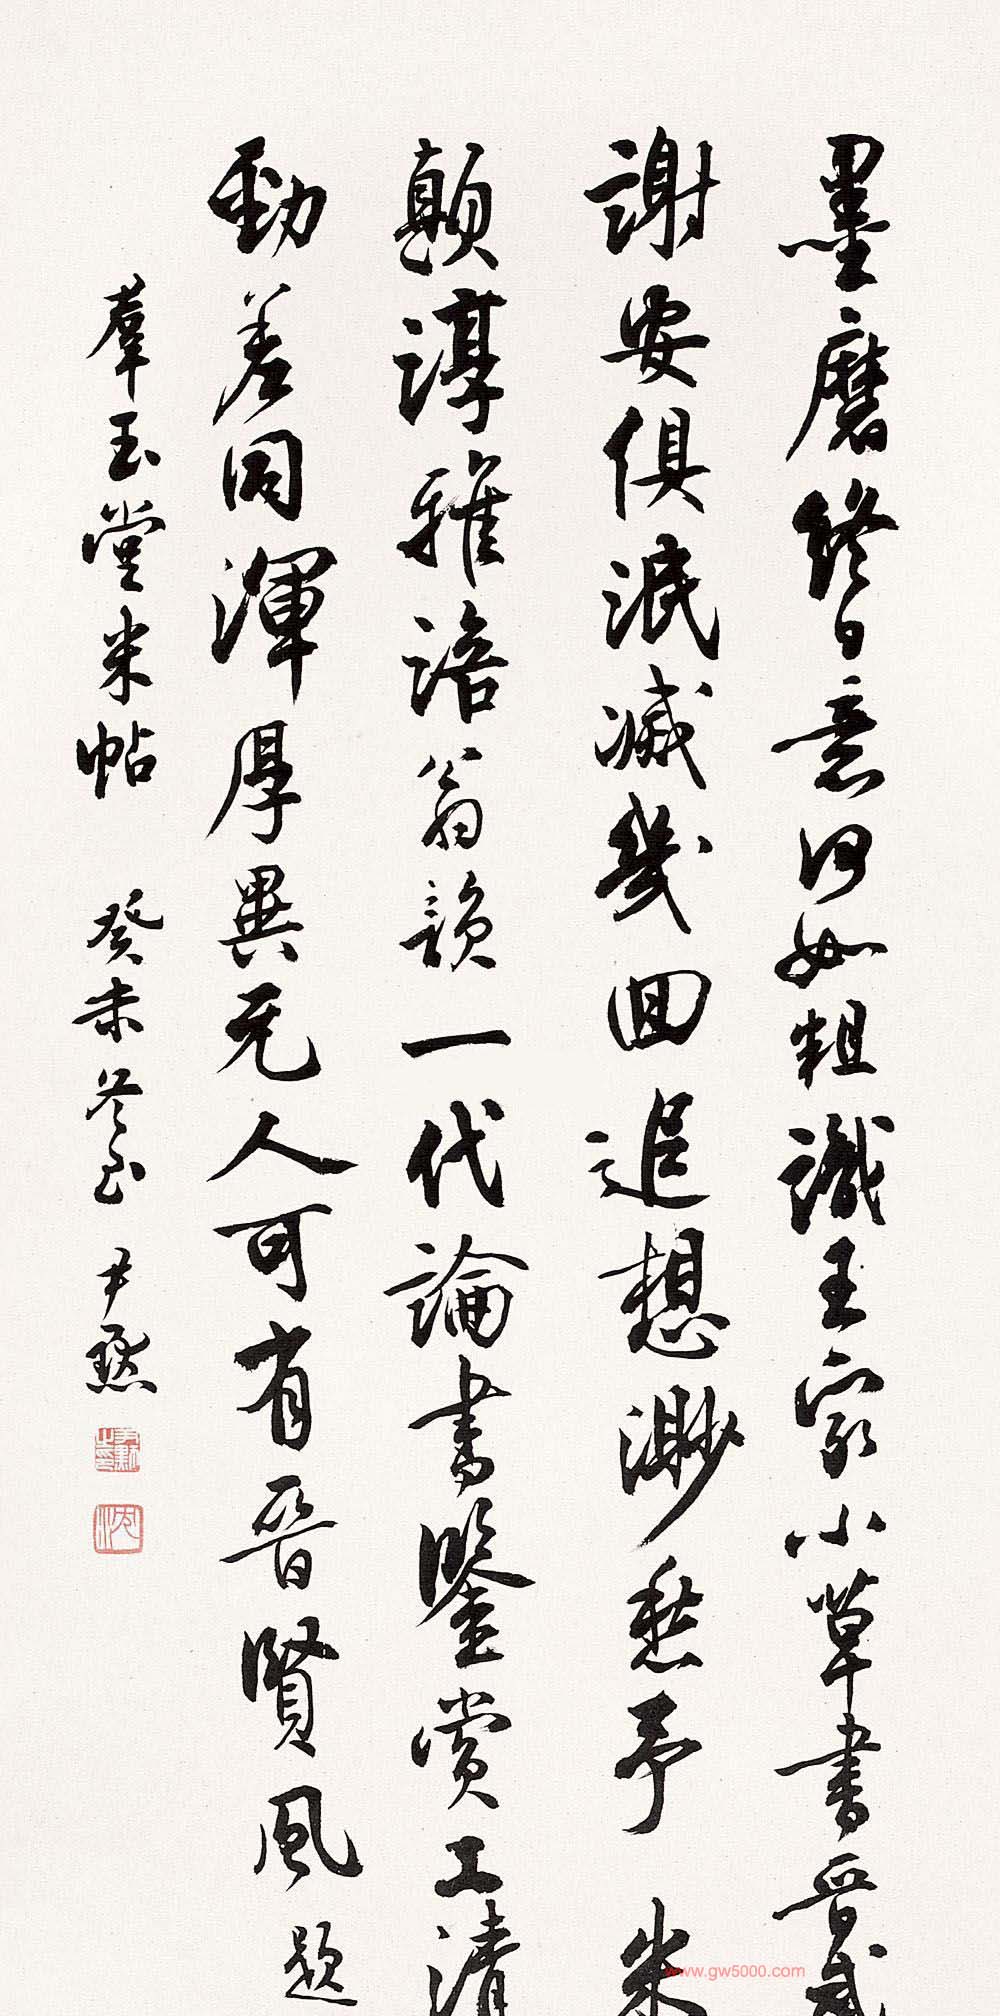 墨磨終日意何如粗識王家小草書晉武
謝安俱泯滅幾回追想渺愁予 米
顛淳雅涪翁韻一代論書鑒賞工清
勁差同渾厚異无人可有晉賢風 題
羣玉堂米帖 癸未冬至 尹默
沈
www.gw5000.com